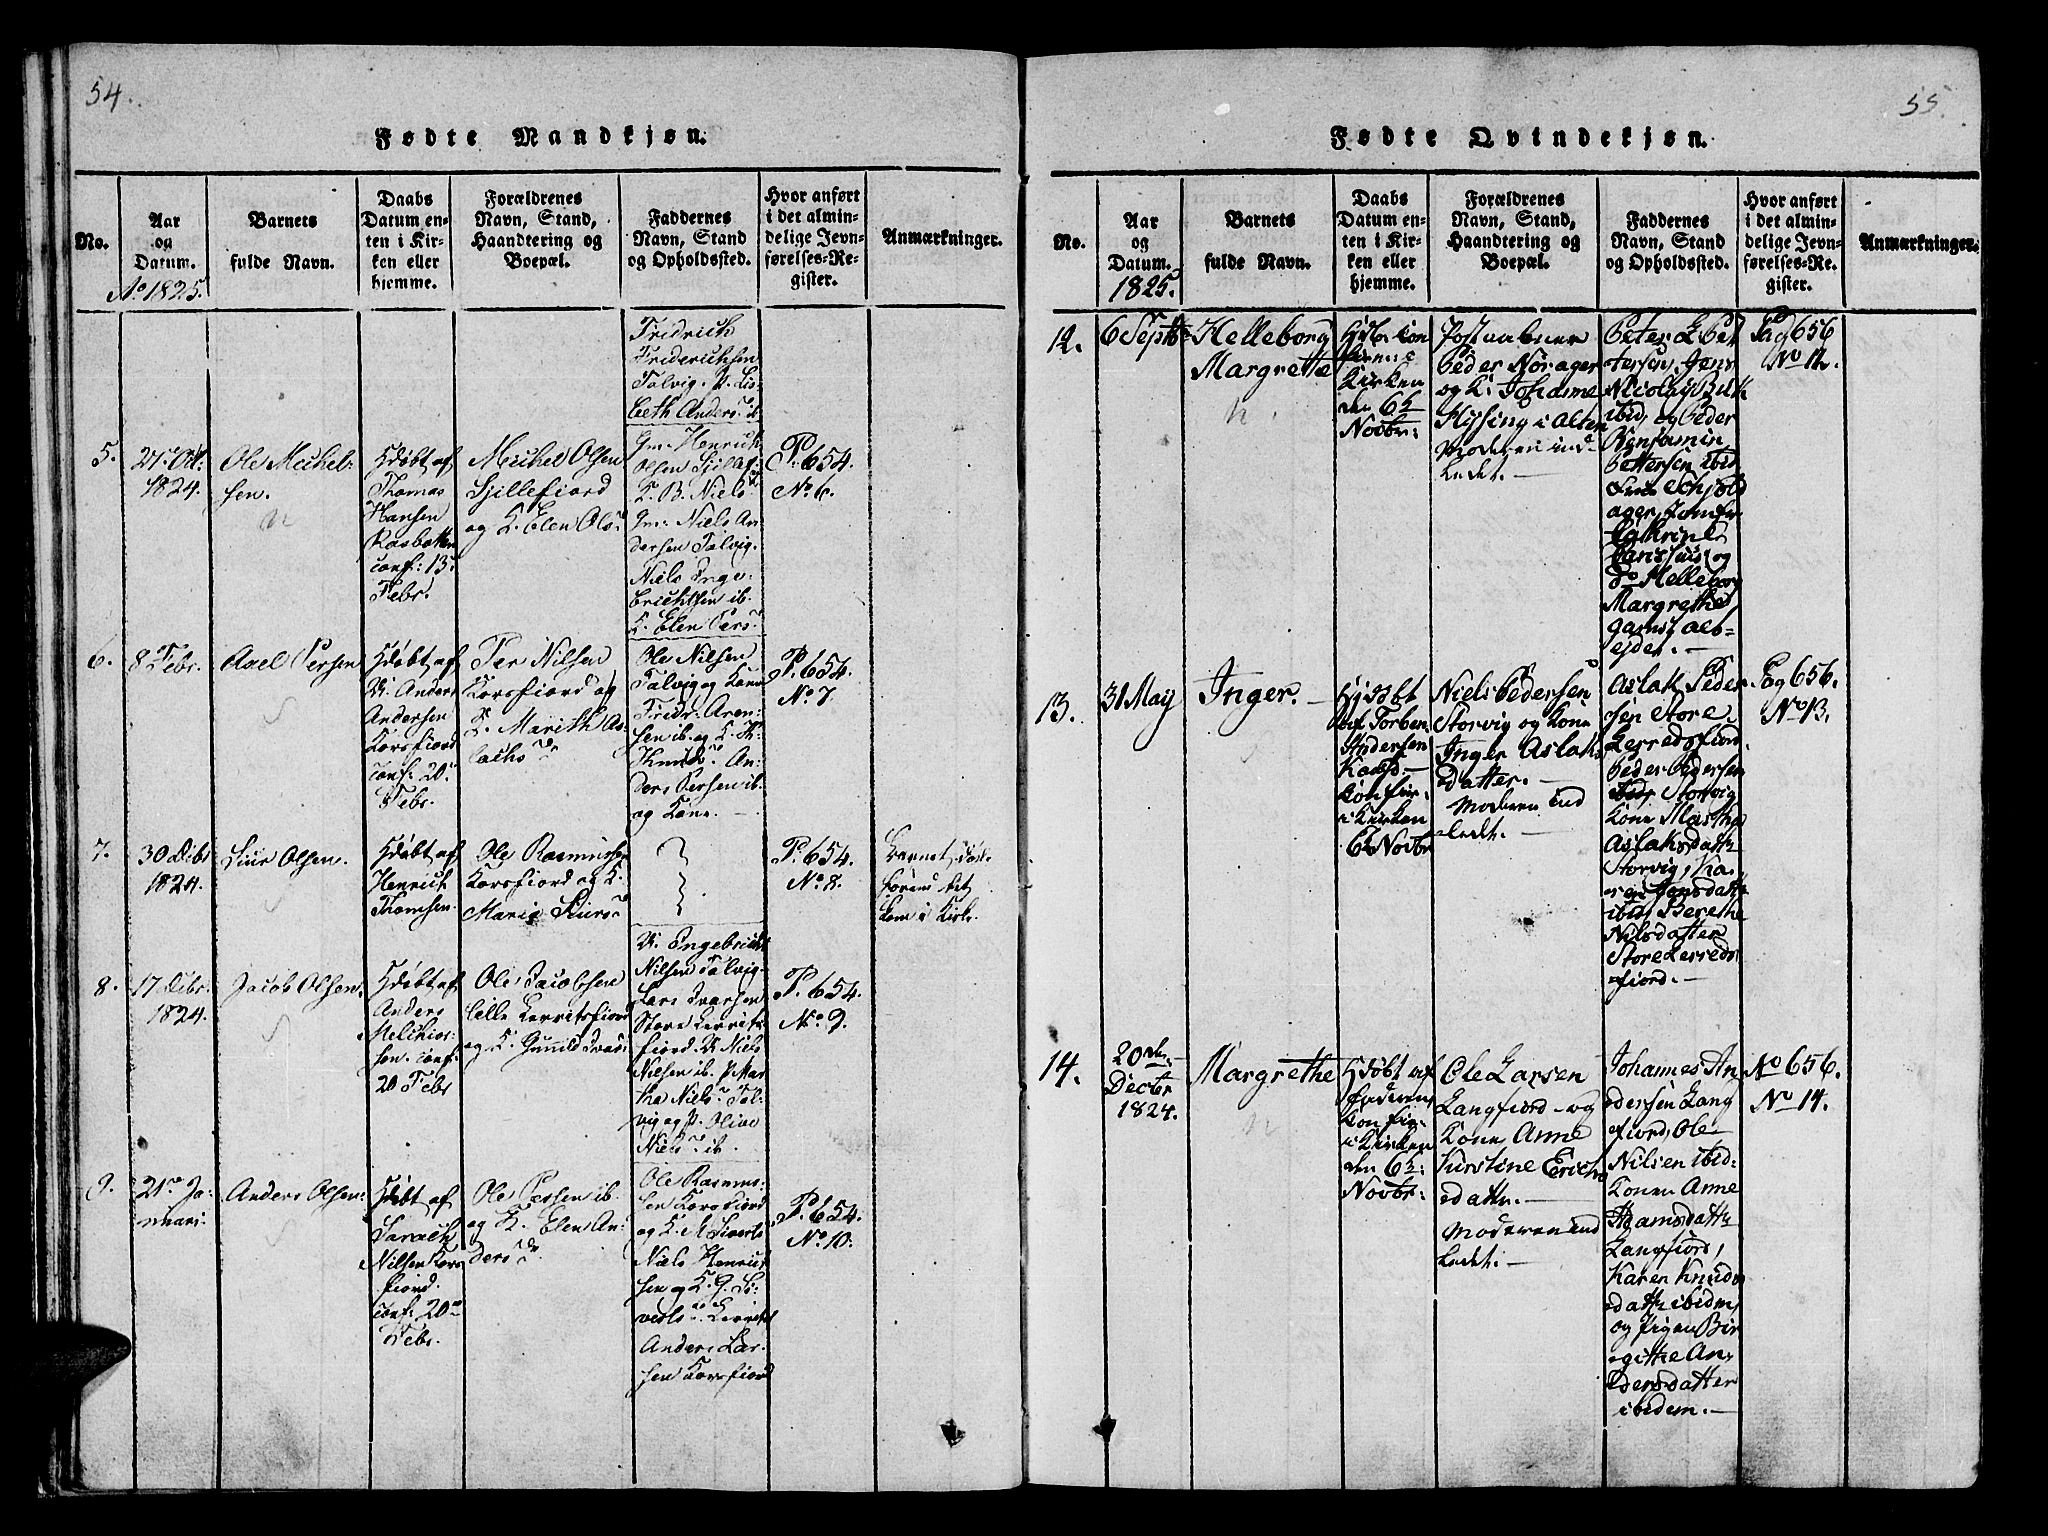 54.
Fødte Mandkjøn.
No.
Aar
og
Datum.
No 1825.
Barnets
fulde Navn.
Daabs
Datum en-
ten i Kir-
ken eller
hjemme.
Forældrenes
Navn, Stand,
Haandtering og
Boepæl.
Faddernes
Navn, Stand
og Opholdssted.
Hvor anført
i det almin-
delige Jevn-
førelses-Re-
gister.
Anmærkninger.
Fridrich
Friderichsen
Talvig. P. Lis-
beth Anders. ib
5.
27 Oct:
1824.
Ole Michel-
sen.
Hdøbt af
Thomas
Hansen
conf: 13
Febr.
Michel Olsen
og K. Elen Ols
Gm. Henrich
Olsen
K. B. Niels
Gm. Niels An-
dersen Talvig.
Niels Inge-
brichtsen ib.
K. Elen Pers
P. 654.
No. 6.
6.
8 Febr.
Axel Persen
Hdøbt af
Anders
Andersen
Korsfiord
conf: 20
Febr.
Per Nilsen
Korsfiord og
K. Marith As-
lachs
Ole Nilsen
Talvig og Kone
Fridr: Aren-
sen ib. og K.
An-
ders Persen ib.
og Kone.
P. 654.
No. 7.
7.
30 Debr
1824.
Siur Olsen.
Hdøbt af
Henrich
Thomsen.
Ole Rasmussen
Korsfiord og K.
Maria Siurs
P. 654.
No. 8.
Barnet døde
førend det
kom i Kirke.
8.
17 Debr.
1824.
Jacob Olsen.
Hdøbt af
Anders
Melchior-
sen. conf:
20 Febr
Ole Jacobsen
Lille Lerritsfiord
og K. Gunild Ivars
Engebricht
Nilsen Talvig.
Lars Ivarsen
Store Lerrits-
fiord. Niels
Nilsen ib. P. Mar-
tha Niels Tal-
vig og P. Olive
Niels ib.
P. 654.
No. 9.
9.
21 Ja-
nuari:
Anders Olsen:
Hdøbt af
Sarach
Nilsen Kors-
fiord.
conf: 20
Febr.
Ole Persen ib.
og K. Elen An-
ders
Ole Rasmus-
sen Korsfiord
og K. M. Siverts
Niels Henrich
sen og K. G. Si-
verts
Anders Lar-
sen Korsfiord
P. 654.
No. 10.
55.
Fødte Qvindekjøn.
No.
Aar
og
Datum.
1825.
Barnets
fulde Navn.
Daabs
Datum en-
ten i Kir-
ken eller
hjemme.
Forældrenes
Navn, Stand,
Haandtering og
Boepæl.
Faddernes
Navn, Stand
og Opholdssted.
Hvor anført
i det almin-
delige Jevn-
førelses-Re-
gister.
Anmærkninger.
12.
6 Septbr
Helleborg
Margrethe
Kirken
den 6te
Novbr:
Postaabner
Peder Norager
og K. Johanne
Hysing i Alten
Moderen ind-
ledet.
Peter L. Pet-
tersen, Jens
Nicolay Buck
ibid, og Peder
Benjamin
Pettersen ibid
ager, Jomfr
Cathrine
og
do Helleborg
Margrethe
Pag 656
No 12.
13.
31 May
Inger.
Hjdøbt
af Torben
Andersen
Konfir:
i Kirken
6te Novbr
Niels Pedersen
Storvig og Kone
Inger Aslaks
Datter.
Moderen ind
ledt.
Aslak Peder-
sen Store
Lerredsfiord.
Peder Pedersen
Storvig
Kone Martha
Aslaksdatt:
Storvig, Ka-
ren Jensdatt:
ibid, Berethe
Nilsdatter
Store Lerreds
fiord.
Pag 656.
No 13.
14.
20de
Decbr
1824.
Margrethe
Hjdøbt af
Faderen,
Konfir:
i Kirken
den 6te
Novbr:
Ole Larsen
Langfiord og
Kone Anne
Kirstine Erichs
datter.
Moderen ind
ledet.
Johannes An
dersen Lang
fiord, Ole
Nilsen ibid:
Konen Anne
Langfiord,
Karen Knuds
datt: ibidm,
og Pigen Bir
gitthe An-
dersdatter
ibidem.
No 656.
No 14.